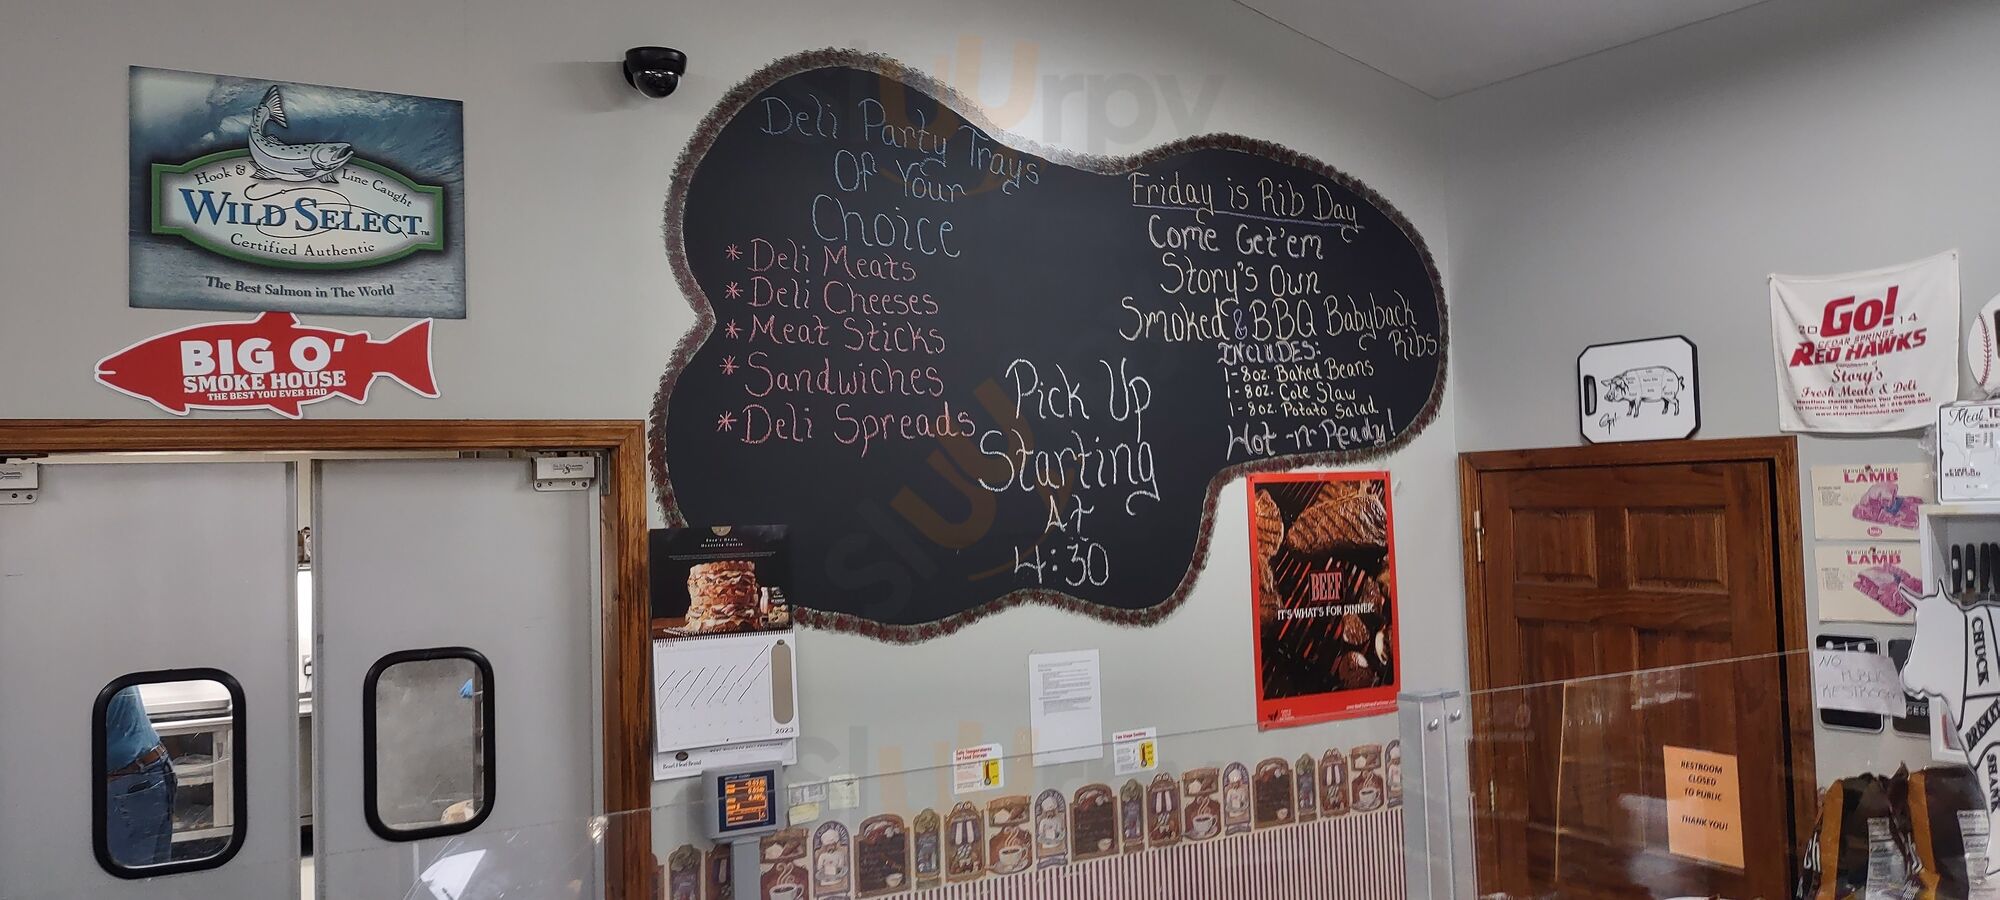 Hook & Line Caught
WILD SELECT™
Certified Authentic
The Best Salmon in The World
BIG O'
SMOKE HOUSE
THE BEST YOU EVER HAD
Deli Party Trays
Of Your
Choice
* Deli Meats
* Deli Cheeses
* Meat Sticks
* Sandwiches
* Deli Spreads
Pick Up
Starting
At
4:30
Friday is Rib Day
Come Get'em
Story's Own
Smoked & BBQ Babyback
Ribs
INCLUDES:
1-8oz. Baked Beans
1-8oz. Cole Slaw
1-8oz. Potato Salad
Hot -n- Ready!
BEEF
IT'S WHAT'S FOR DINNER.
APRIL
2023
Safe Temperatures
for Food Storage
20 Go! 14
CEDAR SPRINGS
RED HAWKS
Story's
Fresh Meats & Deli
LAMB
LAMB
NO
PUBLIC
RESTROOM
CHUCK
BRISKET
SHANK
RESTROOM
CLOSED
TO PUBLIC
THANK YOU!
slUUrpy
slUUrpy
slUUrpy